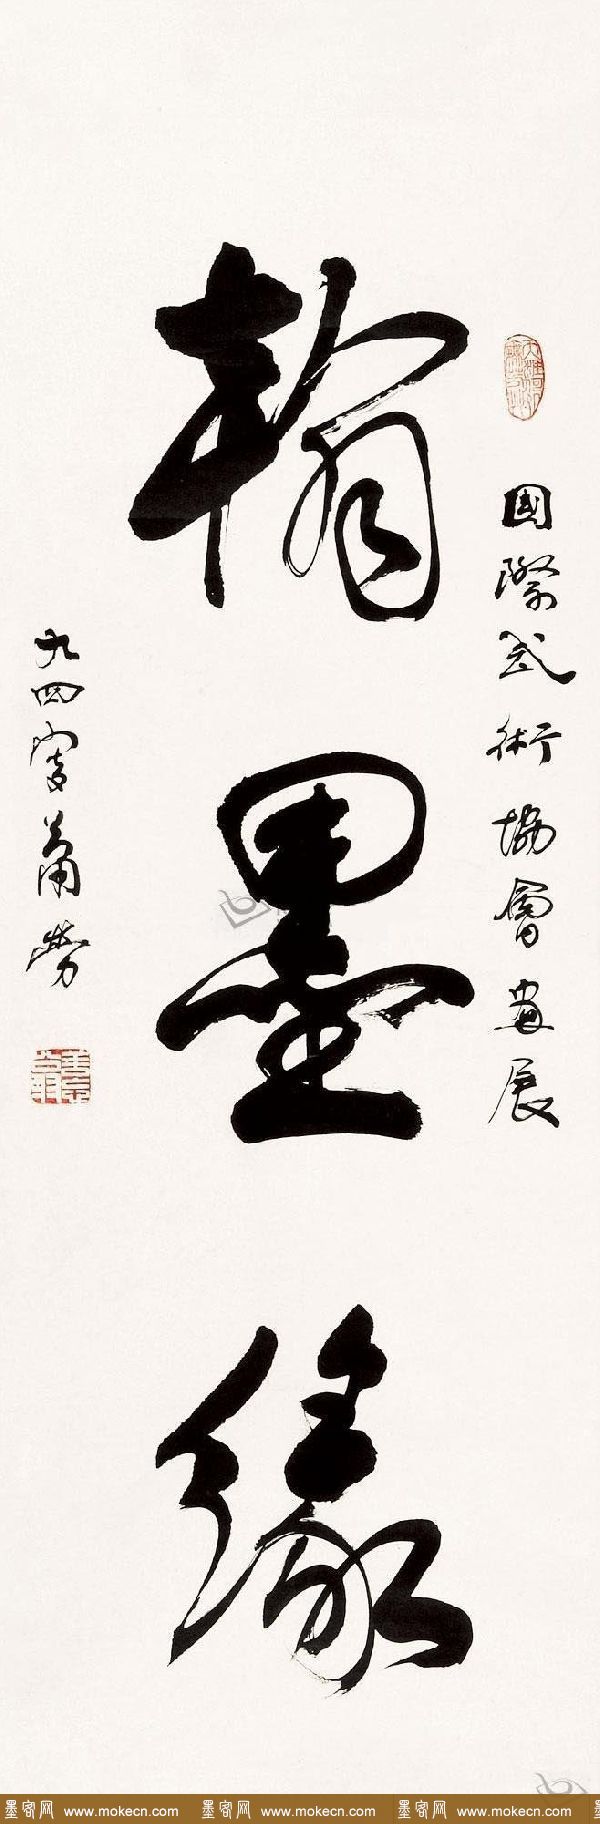 國際武術協會書展
翰墨緣
九四叟蕭勞
墨客网 www.mokecn.com 墨客网 www.mokecn.com 墨客网 www.mokecn.com